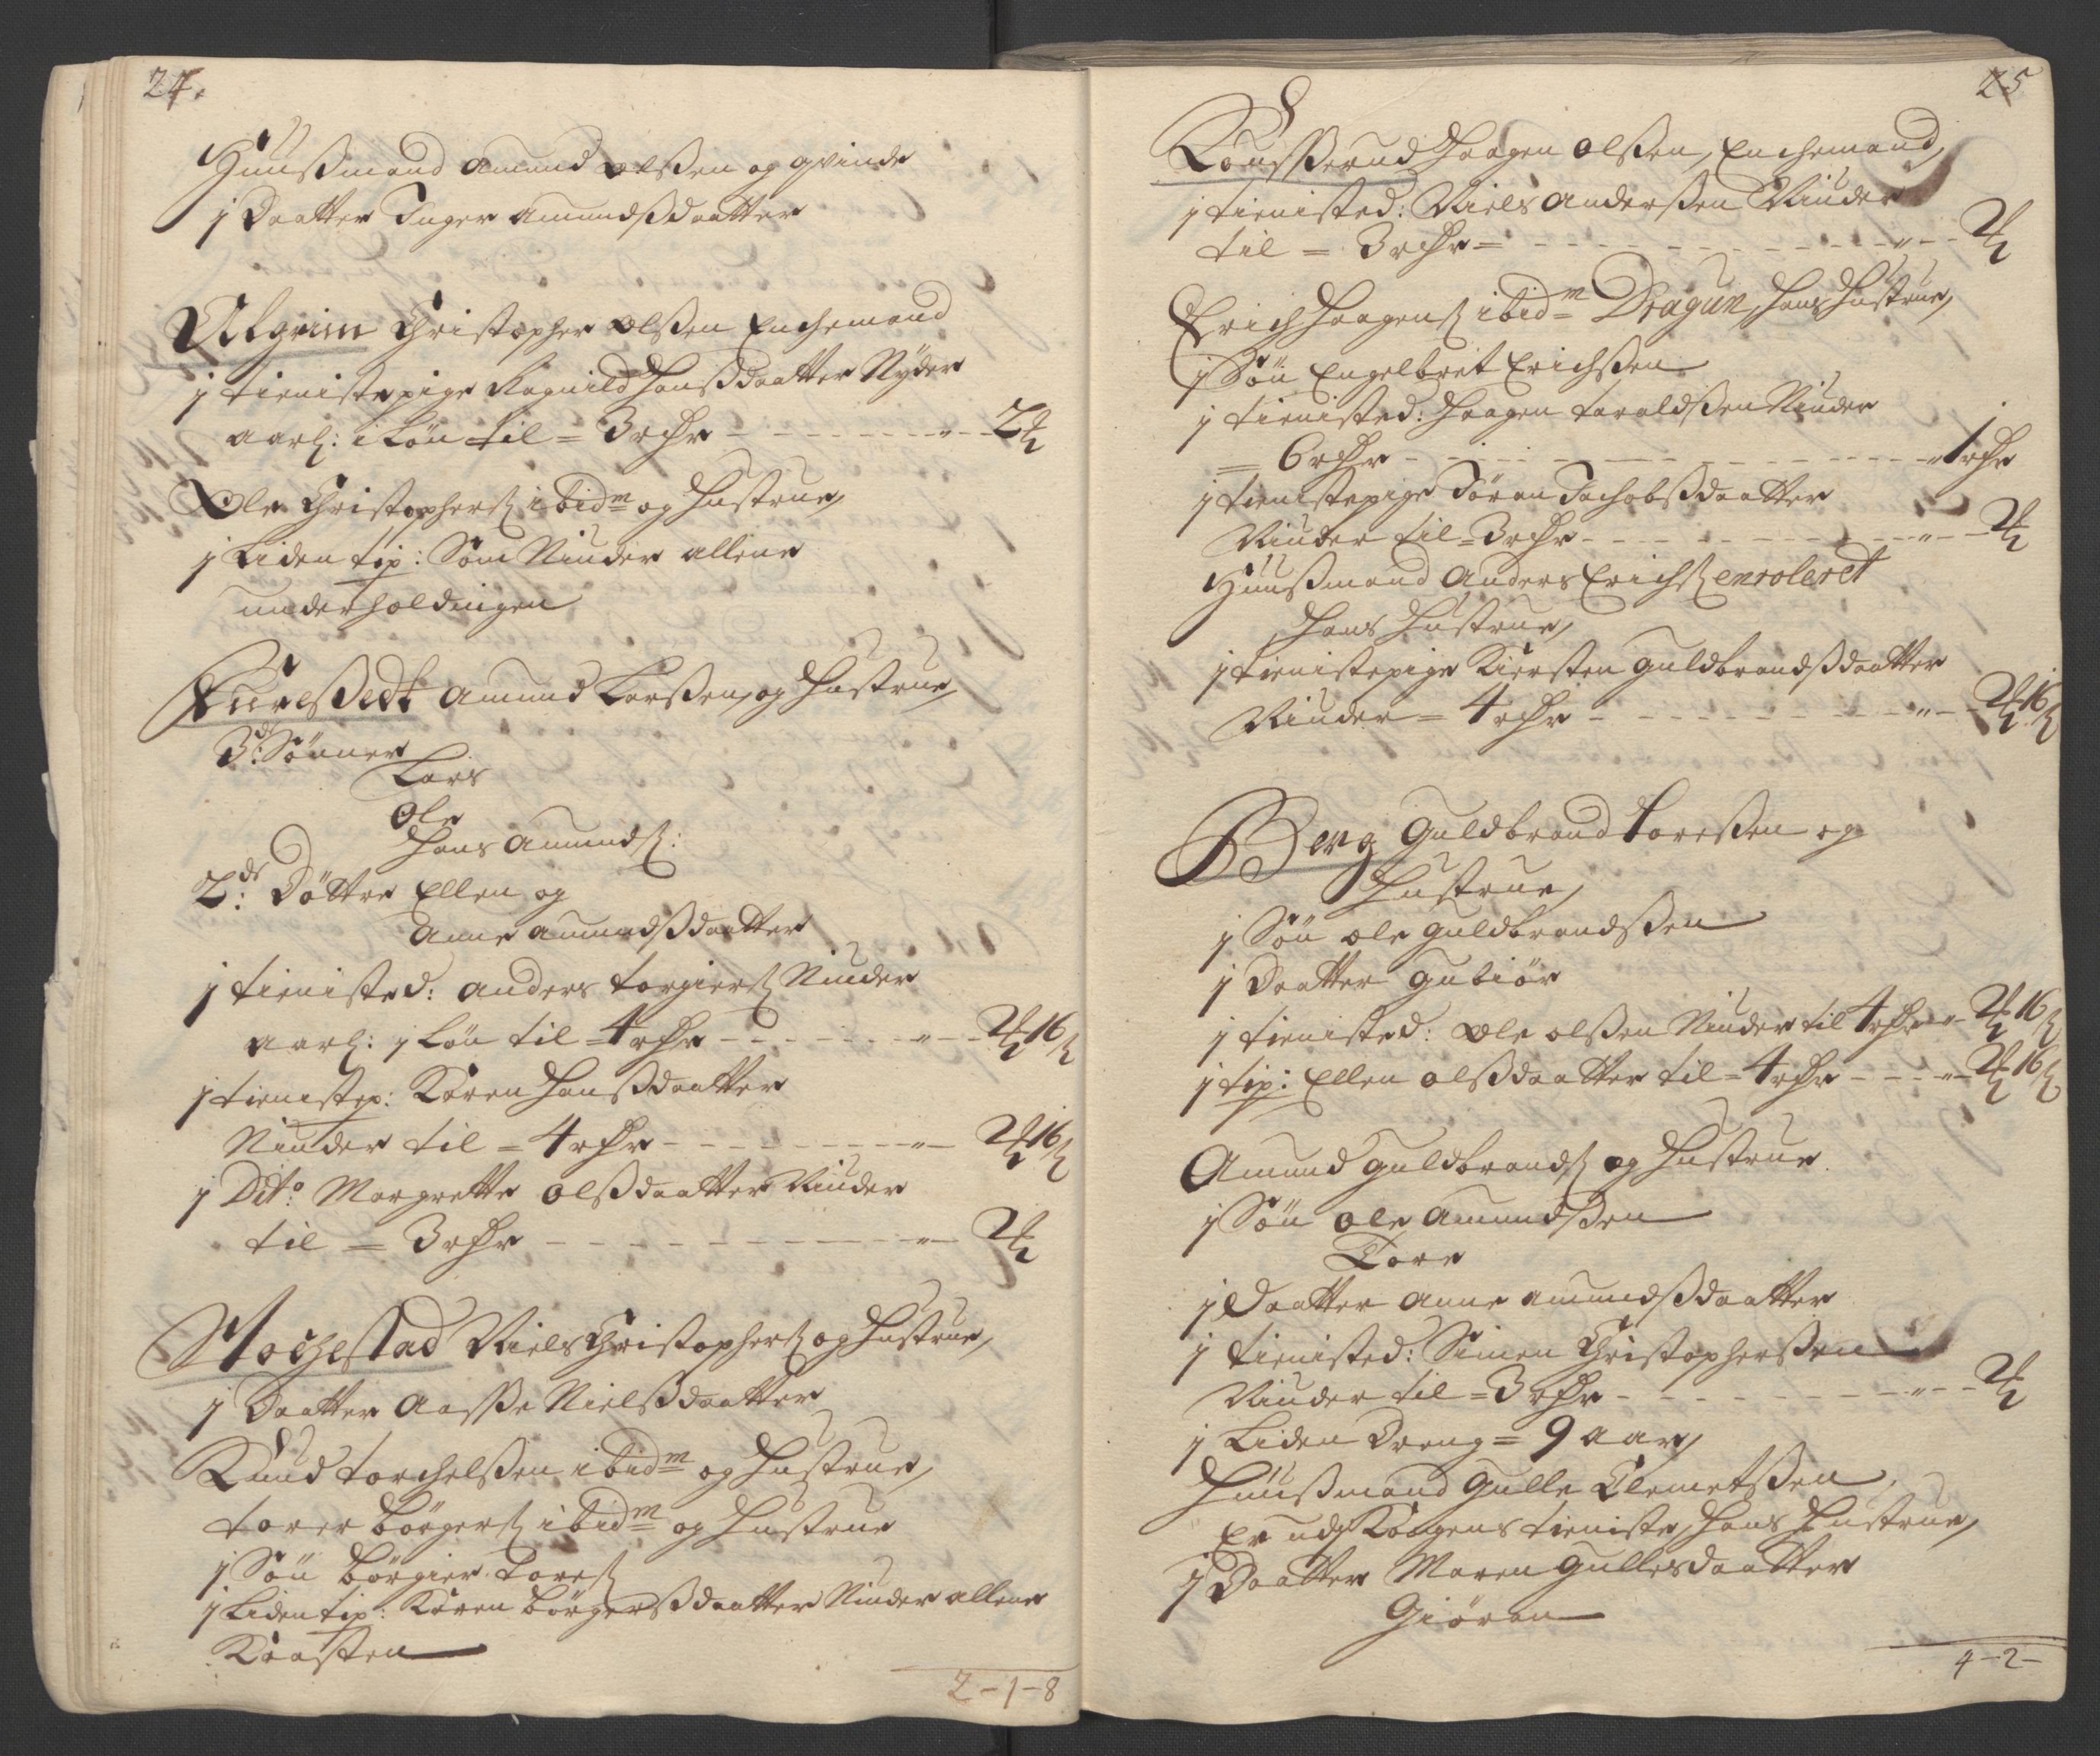 24.
Huusmand Amund Olsßen og qvinde
1 Daatter Inger Amundsßdaatter
Ulgrim Christopher Olsßen Enchemand
1 tieniste pige Ragnild Hansßdaatter Nyder
aarl: i Løn til = 3 rdr - - - 2
Ole Christophers ibidm og Hustrue,
1 Liden tip: Som Niuder allene
underholdningen
Amund Larsßen, og Hustrue,
3de Sönner
Lars
Ole
Hans Amunds:
2de: Döttre Ellen og
Anne Amundsßdaatter
1 tienisted: Anders torgiers Niuder
aarl: i Løn til = 4 rdr - - - 2 16
1 tienistep: Karen Hansßdaatter
Niuder til = 4 rdr - - - 2 16
1 Dito Margrette Olsßdaatter Niuder
til = 3 rdr - - - 2
Niels Christophers og Hustrue,
1 Daatter Aasße Nielsßdaatter
Knud torchelsßen ibidm og Hustrue,
torer børgers ibidm og Hustrue
1 Søn børgier Tores
1 Liden tip: Karen børgersßdaatter Niuder allene
Kaasten
2-1-8
25
Haagen Olsßen, Enchemand,
1 tienisted: Niels Andersßen Niuder
til = 3 rdr = - - - 2
Erich Haagens ibidm Dragun, hans Hustrue,
1 Søn Engelbret Erichsßen
1 tienisted: Haagen taraldsßen Niuder
= 6 rdr - - - 1 rdr
1 tienistepige Jöran Jachobsßdaatter
Niuder til = 3 rdr - - - 2
Huusmand Anders Erichs enroleret
Hans Hustrue,
1 tienistepige Kiersten Guldbrandsßdaatter
Niuder = 4 rdr - - - 2 16
Berg Guldbrand toresßen og
Hustrue,
1 Søn Ole Guldbrandsßen
1 Daatter Gubiör
1 tienisted: Ole Olsßen Niuder til 4 rdr - 2 16
1 tip: Ellen Olsßdaatter til = 4 rdr - - - 2 16
Amund Guldbrands og Hustrue.
1 Søn Ole Amundsßen
Tore
1 Daatter Anne Amundsßdaatter
1 tienisted: Simen Christophersßen
Niuder til = 3 rdr - - - 2
1 Liden Dreng = 9 aar,
Huusmand Gulle Clemetsßen,
Er udj Kongens tieniste, Hans Hustrue,
1 Daatter Maren Gullesdaatter
Giøran
4-2-